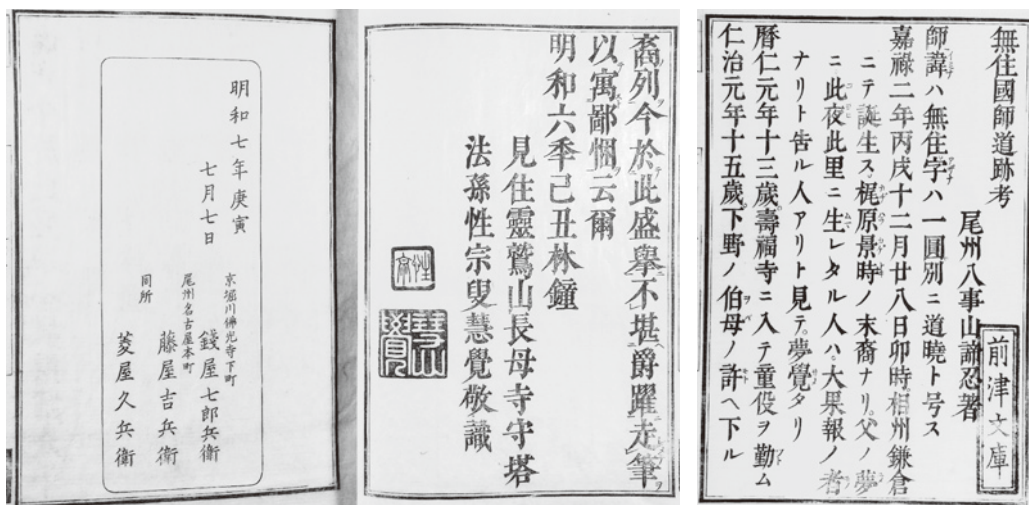 無住國師道跡考
尾州八事山諦忍著
前津文庫
師諱ハ無住字ハ一圓別ニ道曉ト号ス
嘉祿二年丙戌十二月廿八日卯時相州鎌倉
ニテ誕生ス。梶原景時ノ末裔ナリ。父ノ夢
ニ此夜此里ニ生レタル人ハ。大果報ノ者
ナリト告ル人アリト見テ。夢覺タリ
暦仁元年十三歲。壽福寺ニ入テ童役ヲ勤ム
仁治元年十五歲。下野ノ伯母ノ許ヘ下ル
裔列今於此盛擧不堪爵躍走筆
以寓鄙悃云爾
明和六季己丑林鐘
見住靈鷲山長母寺守塔
法孫性宗叟慧覺敬識
性宗
慧覺
明和七年庚寅
七月七日
京堀川佛光寺下町
錢屋七郎兵衛
尾州名古屋本町
藤屋吉兵衛
同所
菱屋久兵衛